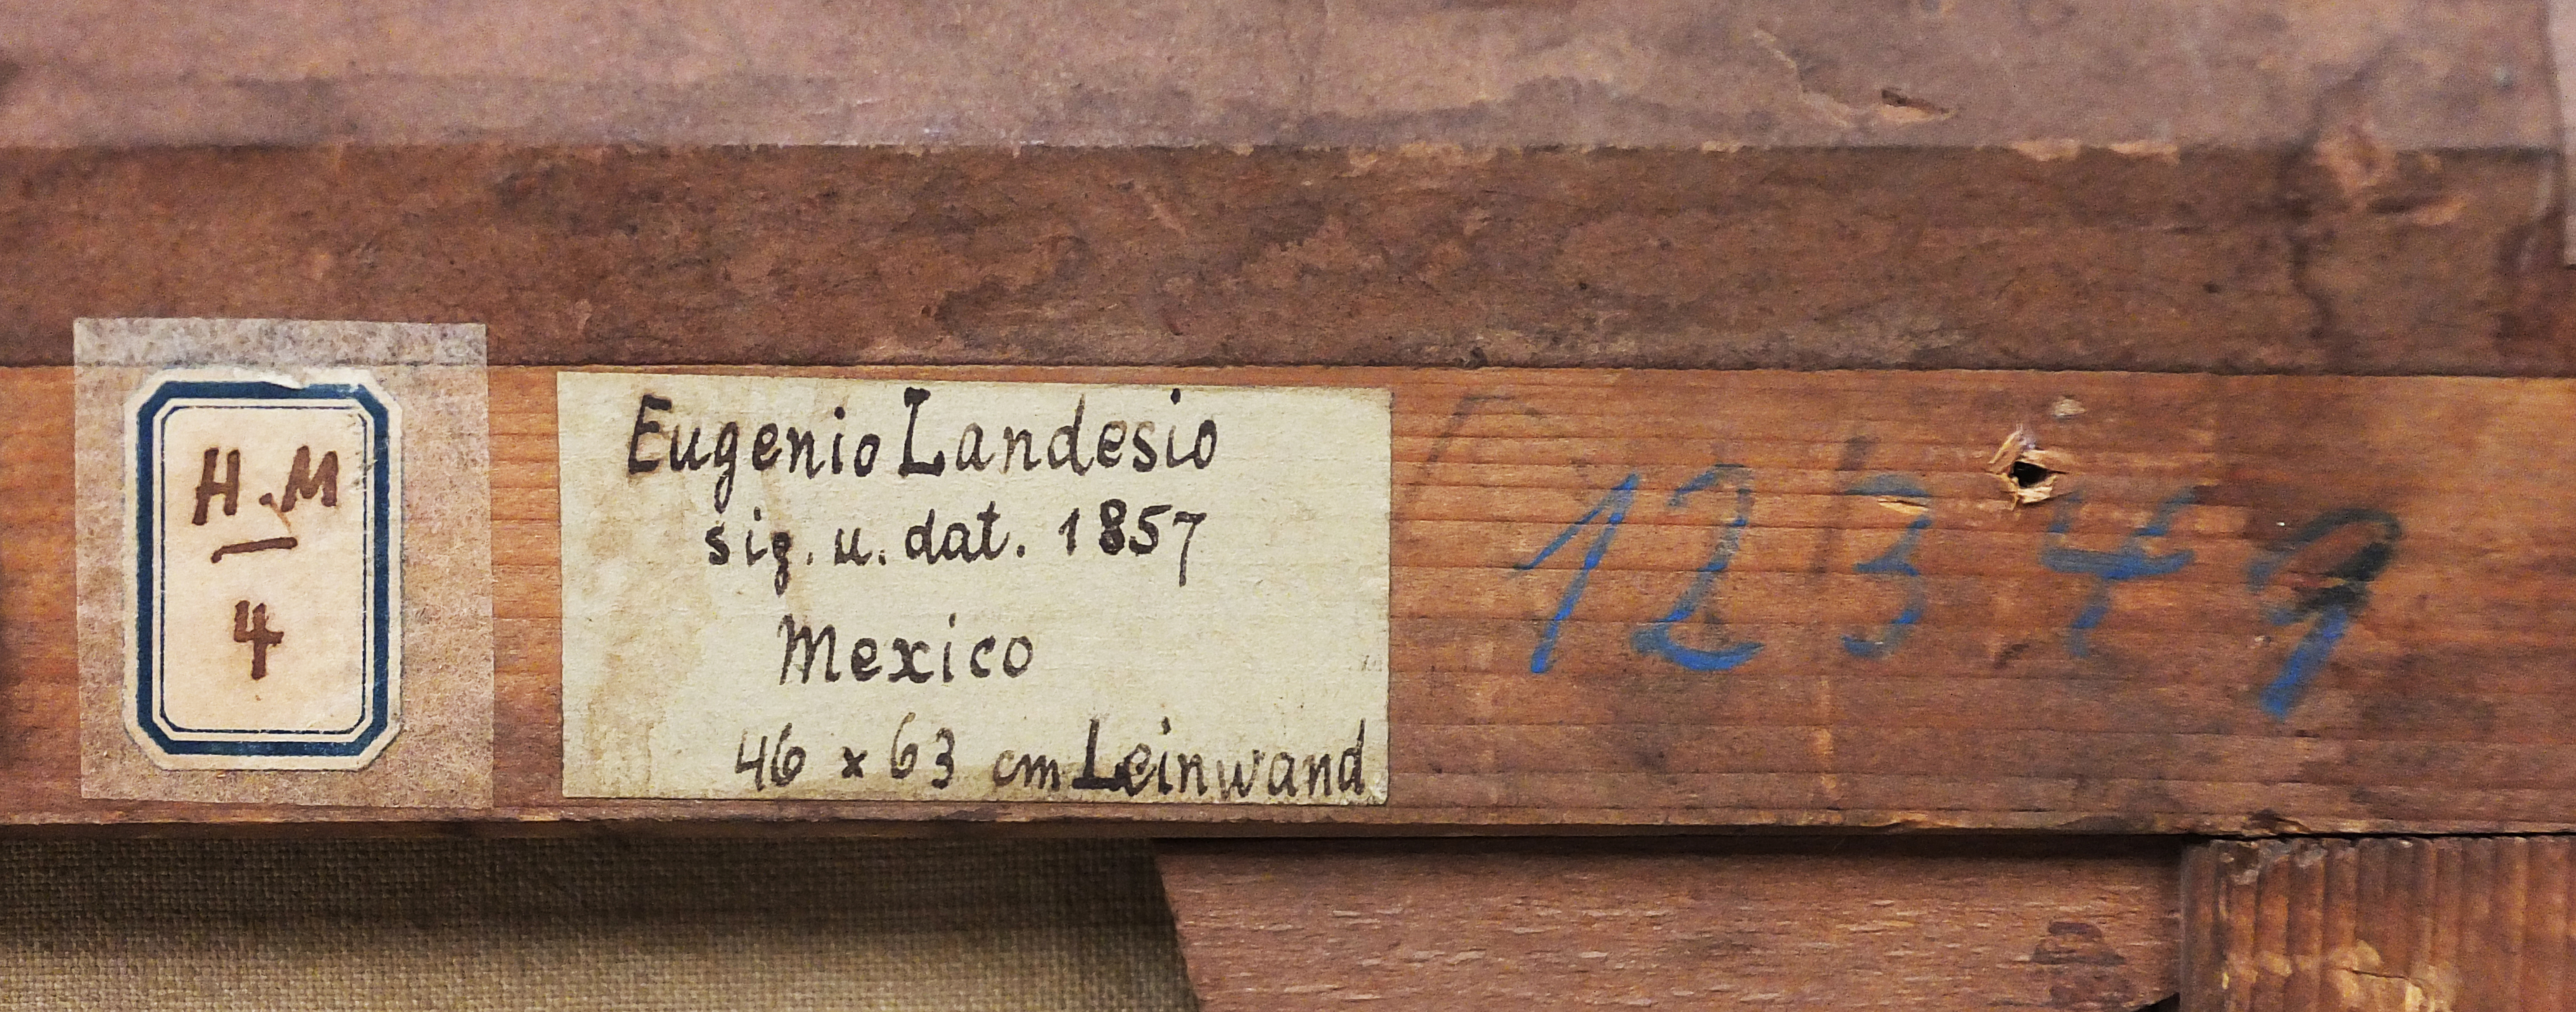 H.M
4
Eugenio Landesio
sig. u. dat. 1857
Mexico
46 x 63 cm Leinwand
12349